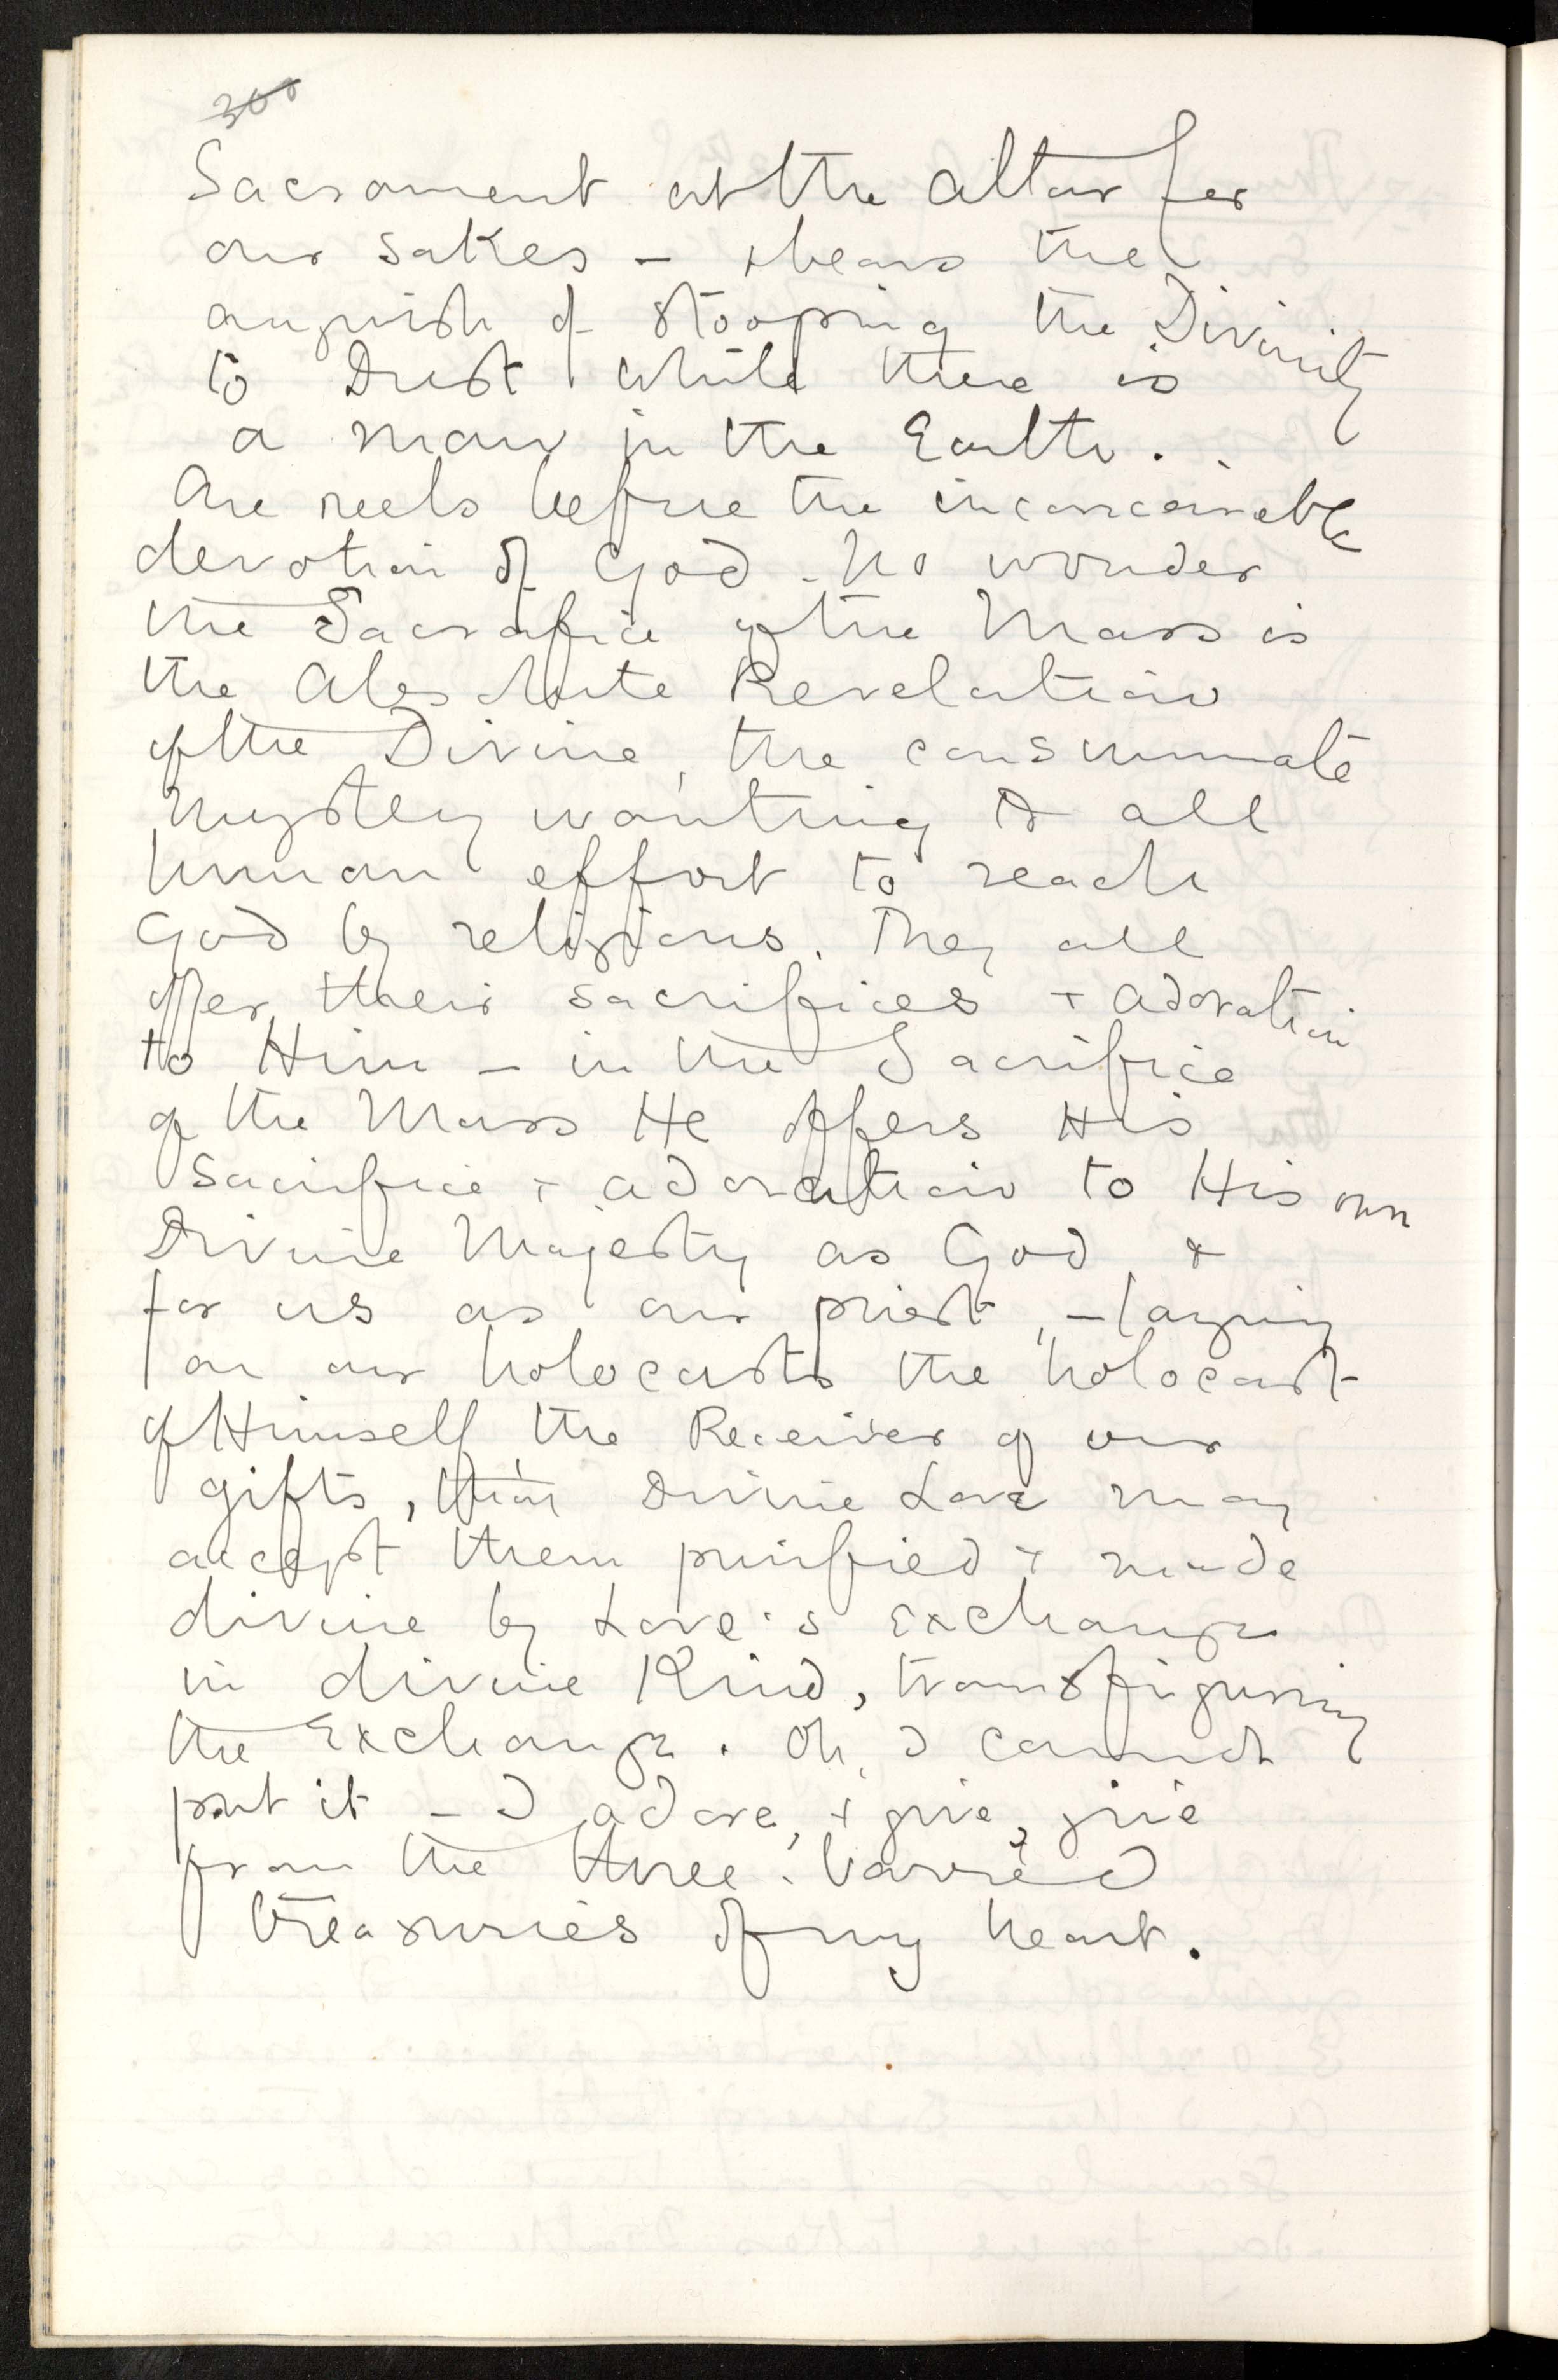 300
Sacrament at the Altar for
our sakes - + bears the
anguish of stooping the Divinity
to Dust while there is
a man in the Earth.
One reels before the inconceivable
devotion of God. No wonder
the Sacrafice of the Mass is
the Absolute Revelation
of the Divine, the consummate
Mystery wanting to all
human effort to reach
God by religions. They all
offer their sacrifices + adoration
to Him - in the Sacrifice
of the Mass He offers His
Sacrifice + adoration to His own
Divine Majesty as God, +
for us as our priest, - laying
on our holocausts the holocaust
of Himself, the Receiver of our
gifts, that Divine Love may
accept them purified + made
divine by Love's exchange
in divine Kind, transfiguring
the Exchange. Oh, I cannot
put it - I adore, + give, give
from the three-barred
treasuries of my heart.